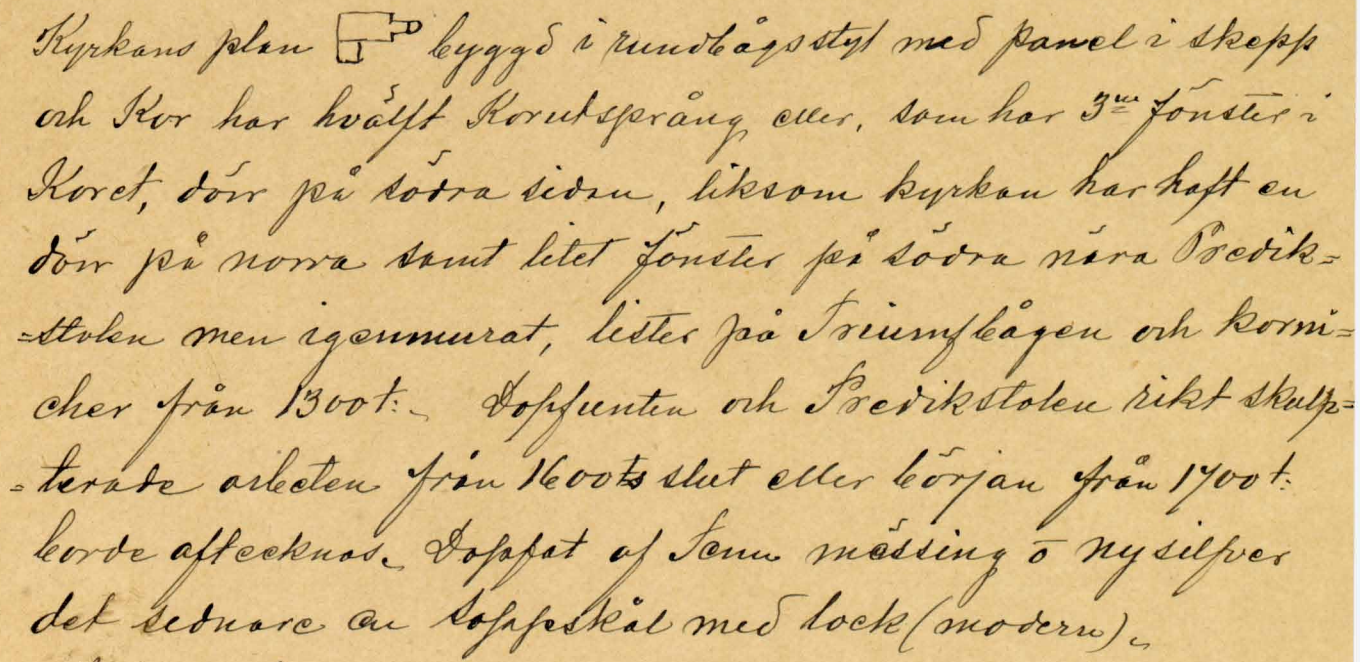 Kyrkans plan byggd i rundbågsstyl med panel i skepp
och Kor har hvälft Korutsprång eller, som har 3ne fönster i
Koret, dörr på södra sidan, liksom kyrkan har haft en
dörr på norra samt litet fönster på södra nära Predik=
=stolen men igenmurat, lister på Triumfbågen och korni=
cher från 1300t:. Dopfunten och Predikstolen rikt skulp=
=terade arbeten från 1600ts slut eller början från 1700t:
borde aftecknas. Dopfat af Tenn mässing o nysilfver
det sednare en soppskål med lock (modern).